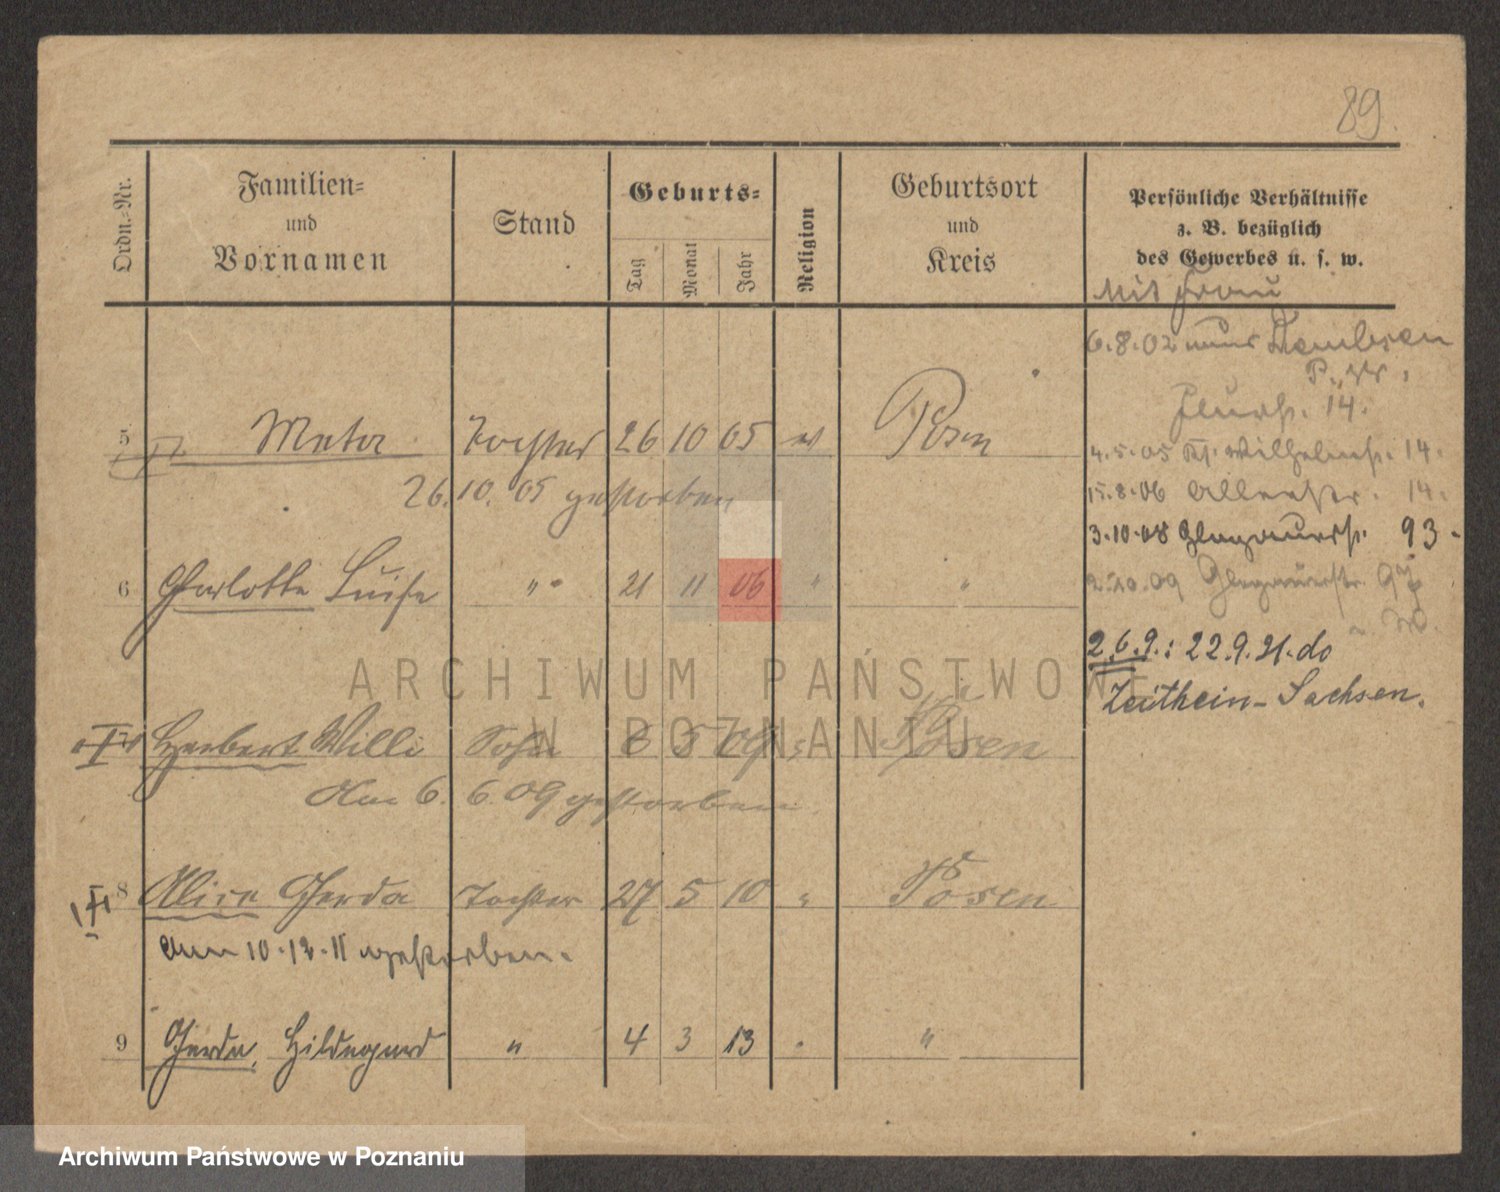 89.
Ordn.-Nr.
Familien-
und
Vornamen
Stand
Geburts-
Tag
Monat
Jahr
Religion
Geburtsort
und
Kreis
Persönliche Verhältnisse
z. B. bezüglich
des Gewerbes u. s. w.
Mit Frau
6.8.02 Dembsen
14.
5 Meta Tochter 26 10 05 ev Posen
4.5.05 Kl. Wilhelmstr. 14.
26.10.05 gestorben
15.8.06 14.
3.10.08 Glogauerstr. 93.
6 Charlotte Luise " 21 11 06 " "
2.10.09 Glogauerstr.
2.6.9.: 22.9.21. do
Zeithein-Sachsen.
ARCHIWUM PAŃSTWOWE
W POZNANIU
Herbert Willi Sohn 8 5 09 " Posen
Am 6. 6. 09 gestorben
8 Alice Gerda Tochter 27 5 10 " Posen
am 10.12.11 gestorben.
9 Gerda, Hildegard " 4 3 13 " "
Archiwum Państwowe w Poznaniu